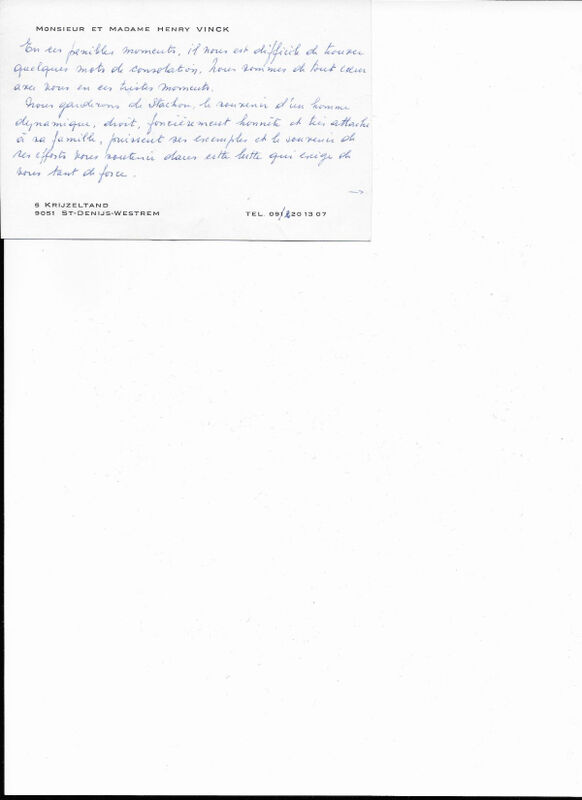 MONSIEUR ET MADAME HENRY VINCK
En ces pénibles moments, il nous est difficile de trouver
quelques mots de consolation. Nous sommes de tout cœur
avec vous en ces tristes moments.
Nous garderons de Stachon, le souvenir d'un homme
dynamique, droit, foncièrement honnête et très attaché
à sa famille, puissent ses exemples et le souvenir de
ses efforts vous soutenir dans cette lutte qui exige de
vous tant de force.
→
6 KRIJZELTAND
9051 ST-DENIJS-WESTREM
TEL. 09/220 13 07